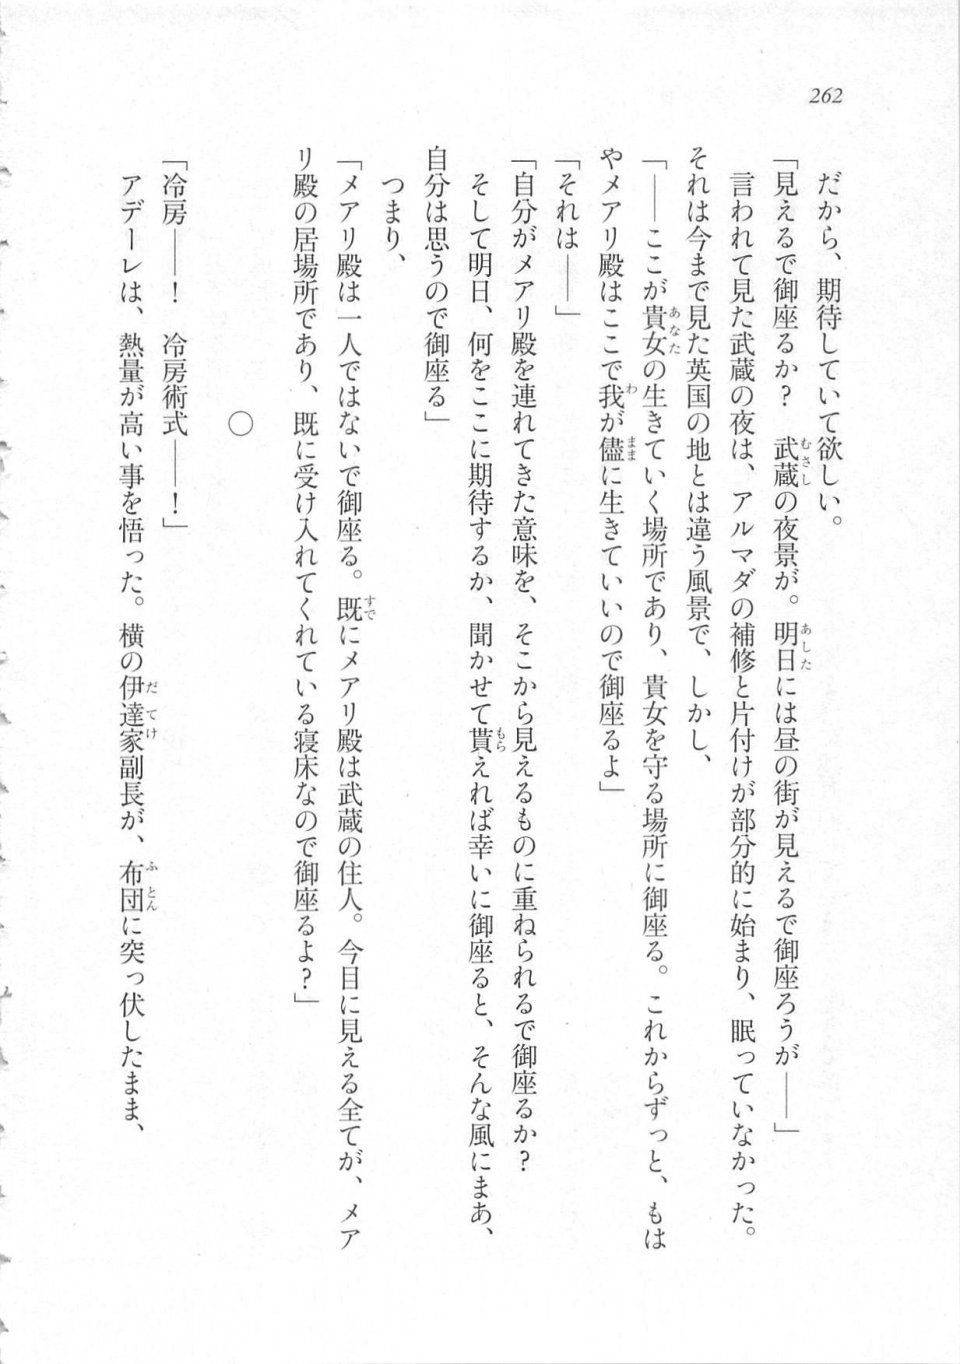 262
だから、期待していて欲しい。
「見えるで御座るか？　武蔵の夜景が。明日には昼の街が見えるで御座ろうが――」
言われて見た武蔵の夜は、アルマダの補修と片付けが部分的に始まり、眠っていなかった。
それは今まで見た英国の地とは違う風景で、しかし、
「――ここが貴女の生きていく場所であり、貴女を守る場所に御座る。これからずっと、もは
やメアリ殿はここで我が儘に生きていいので御座るよ」
「それは――」
「自分がメアリ殿を連れてきた意味を、そこから見えるものに重ねられるで御座るか？
そして明日、何をここに期待するか、聞かせて貰えれば幸いに御座ると、そんな風にまあ、
自分は思うので御座る」
つまり、
「メアリ殿は一人ではないで御座る。既にメアリ殿は武蔵の住人。今目に見える全てが、メア
リ殿の居場所であり、既に受け入れてくれている寝床なので御座るよ？」
○
「冷房――！　冷房術式――！」
アデーレは、熱量が高い事を悟った。横の伊達家副長が、布団に突っ伏したまま、